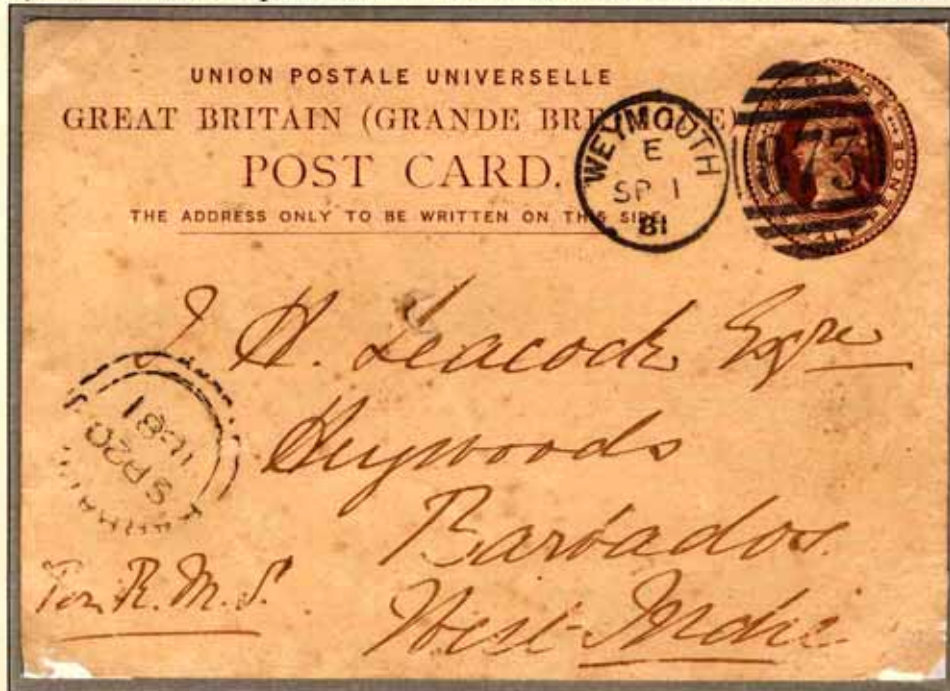 UNION POSTALE UNIVERSELLE
GREAT BRITAIN (GRANDE BRE E)
POST CARD.
THE ADDRESS ONLY TO BE WRITTEN ON THIS SIDE.
WEYMOUTH
E
SP 1
81
873
J. H. Leacock Esqre
Heywoods
Barbados
West Indies
SP 20
81
Per R.M.S.